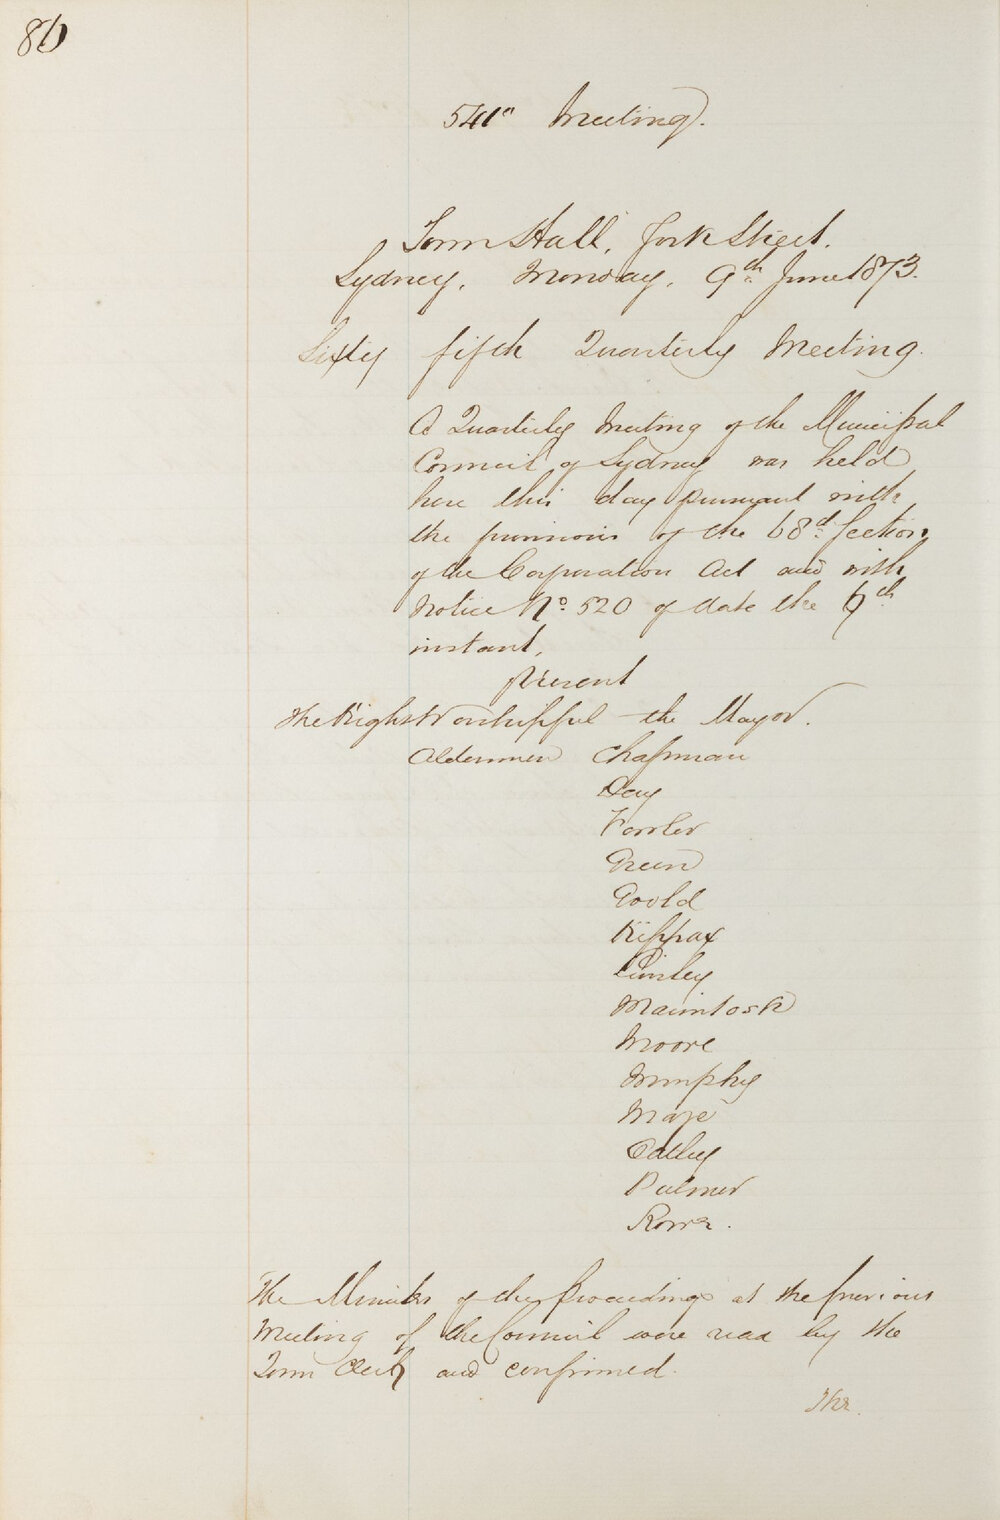 86
541st Meeting.
Town Hall, York Street.
Sydney, Monday, 9th June 1873.
Sixty fifth Quarterly Meeting.
A Quarterly Meeting of the Municipal
Council of Sydney was held
here this day pursuant with
the provisions of the 68d Section
of the Corporation Act and with
Notice No. 520 of date the 6th
instant,
Present
The Right Worshipful the Mayor.
Aldermen Chapman
Day
Fowler
Green
Goold
Kippax
Linsley
Macintosh
Moore
Murphy
Oatley
Palmer
Rowe.
The Minutes of the Proceedings at the previous
Meeting of the Council were read by the
Town Clerk and confirmed.
The